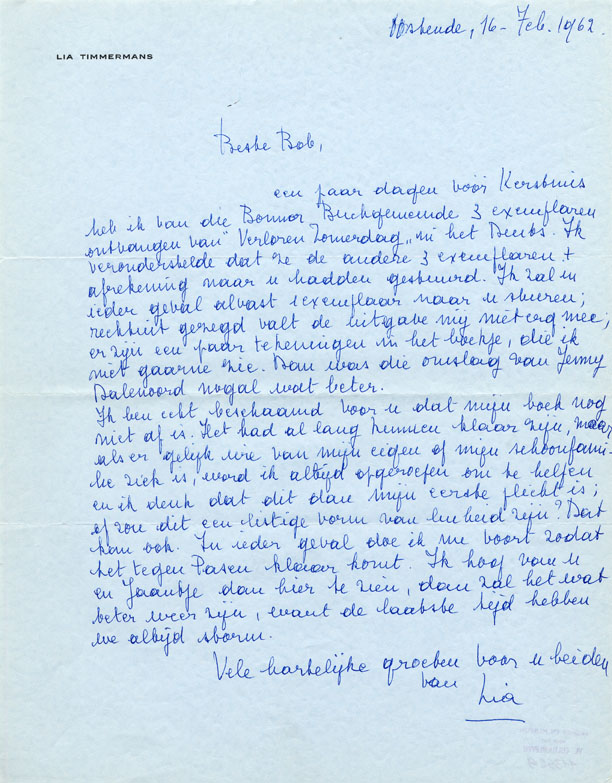 Oostende, 16 - Feb. 1962.
LIA TIMMERMANS
Beste Bob,
een paar dagen vóór Kerstmis
heb ik van die Bonner Buchgemeinde 3 exemplaren
ontvangen van "Verloren Zomerdag" in het Duits. Ik
veronderstelde dat ze de andere 3 exemplaren +
afrekening naar u hadden gestuurd. Ik zal in
ieder geval alvast 1 exemplaar naar u sturen;
rechtuit gezegd valt de uitgave mij niet erg mee;
er zijn een paar tekeningen in het boekje, die ik
niet gaarne zie. Dan was die omslag van Jenny
Dalenoord nogal wat beter.
Ik ben echt beschaamd voor u dat mijn boek nog
niet af is. Het had al lang kunnen klaar zijn, maar
als er gelijk wie van mijn eigen of mijn schoonfami-
lie ziek is, word ik altijd opgeroepen om te helpen
en ik denk dat dit dan mijn eerste plicht is;
of zou dit een listige vorm van luiheid zijn? Dat
kan ook. In ieder geval doe ik nu voort zodat
het tegen Pasen klaar komt. Ik hoop van u
en Jaantje dan hier te zien, dan zal het wat
beter weer zijn, want de laatste tijd hebben
we altijd storm.
Vele hartelijke groeten voor u beiden
van Lia